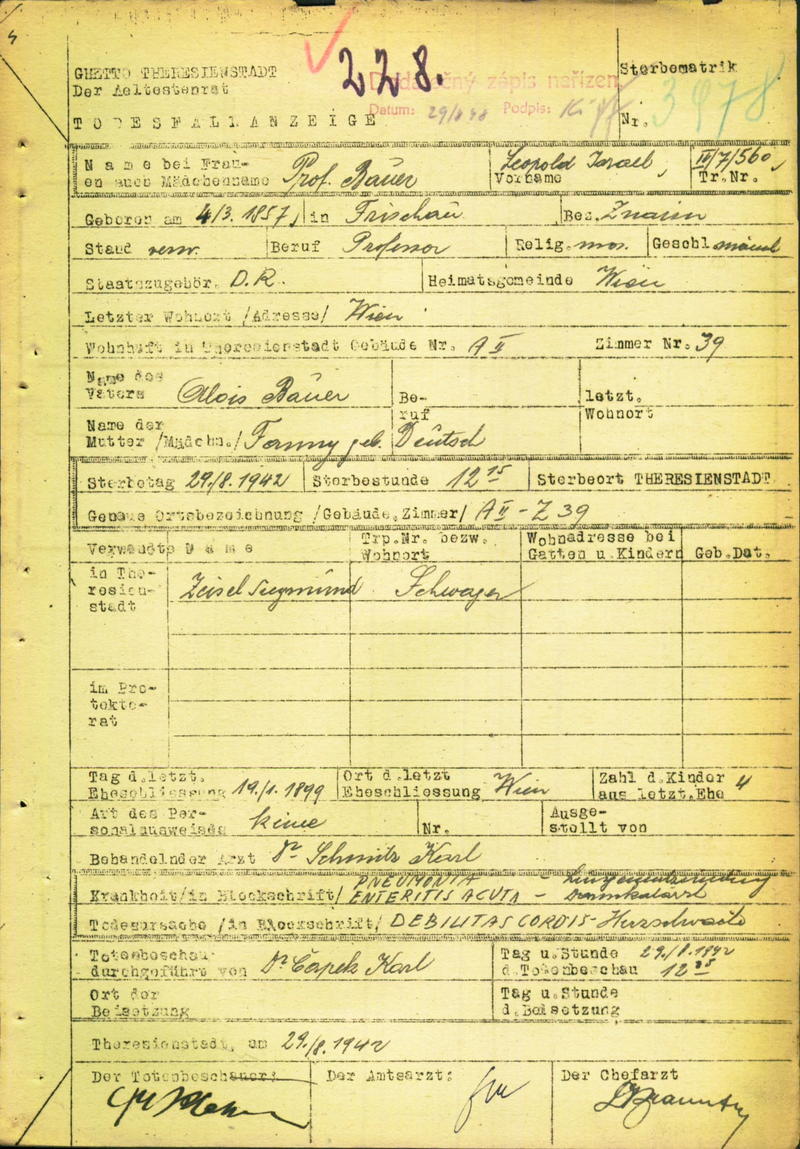 228.
GHETTO THERESIENSTADT
Der Aeltestenrat
Dodatečný zápis nařízen
Datum: 29/8 48 Podpis:
Sterbematrik
Nr. 3978
TODESFALLANZEIGE
Name bei Frau-
en auch Mädchenname Prof. Bauer
Leopold Israel
Vorname
IV/7/560
Tr.Nr.
Geboren am 4/3. 1857, in Frischau Bez. Znaim
Stand verw. Beruf Professor Relig. mos. Geschl männl
Staatszugehör. D.R. Heimatsgemeinde Wien
Letzter Wohnort /Adresse/ Wien
Wohnhaft in Theresienstadt Gebäude Nr. A II Zimmer Nr. 39
Name des
Vaters Alois Bauer
Be-
ruf
letzt.
Wohnort
Name der
Mutter /Mädchn./ Fanny geb. Deutsch
Sterbetag 29./8. 1942 Sterbestunde 12 15 Sterbeort THERESIENSTADT
Genaue Ortsbezeichnung /Gebäude, Zimmer/ A II - Z 39
Verwandte Name
Trp.Nr. bezw.
Wohnort
Wohnadresse bei
Gatten u.Kindern
Geb.Dat.
in The-
resien-
stadt
Zeisel Siegmund Schwager
im Pro-
tekto-
rat
Tag d.letzt.
Eheschliessung 19./1. 1899
Ort d.letzt
Eheschliessung Wien
Zahl d.Kinder
aus letzt.Ehe 4
Art des Per-
sonalausweises keine
Nr.
Ausge-
stellt von
Behandelnder Arzt Dr. Schmitz Karl
PNEUMONIA - Lungenentzündung
Krankheit/in Blockschrift/ ENTERITIS ACUTA - Darmkatarrh
Todesursache /in Blockschrift/ DEBILITAS CORDIS - Herzschwäche
Totenbeschau
durchgeführt von Dr. Čapek Karl
Tag u.Stunde 29./8. 1942
d.Totenbeschau
Ort der
Beisetzung
Tag u.Stunde
d.Beisetzung
Theresienstadt, am 29./8. 1942
Der Totenbeschauer:
Der Amtsarzt:
Der Chefarzt